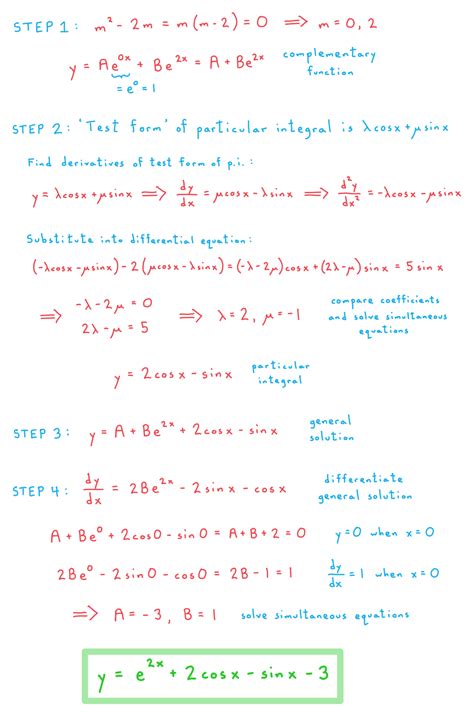 STEP 1: m² - 2m = m(m-2) = 0 ⟹ m = 0, 2
y = Ae^{0x} + Be^{2x} = A + Be^{2x} complementary function
= e⁰ = 1
STEP 2: 'Test form' of particular integral is λcosx + μsinx
Find derivatives of test form of p.i.:
y = λcosx + μsinx ⟹ dy/dx = μcosx - λsinx ⟹ d²y/dx² = -λcosx - μsinx
Substitute into differential equation:
(-λcosx - μsinx) - 2(μcosx - λsinx) = (-λ-2μ)cosx + (2λ-μ)sinx = 5 sin x
⟹ -λ - 2μ = 0
2λ - μ = 5 ⟹ λ = 2, μ = -1 compare coefficients and solve simultaneous equations
y = 2cosx - sinx particular integral
STEP 3: y = A + Be^{2x} + 2cosx - sinx general solution
STEP 4: dy/dx = 2Be^{2x} - 2sinx - cosx differentiate general solution
A + Be⁰ + 2cos0 - sin0 = A + B + 2 = 0 y=0 when x=0
2Be⁰ - 2sin0 - cos0 = 2B - 1 = 1 dy/dx = 1 when x=0
⟹ A = -3, B = 1 solve simultaneous equations
y = e^{2x} + 2cosx - sinx - 3